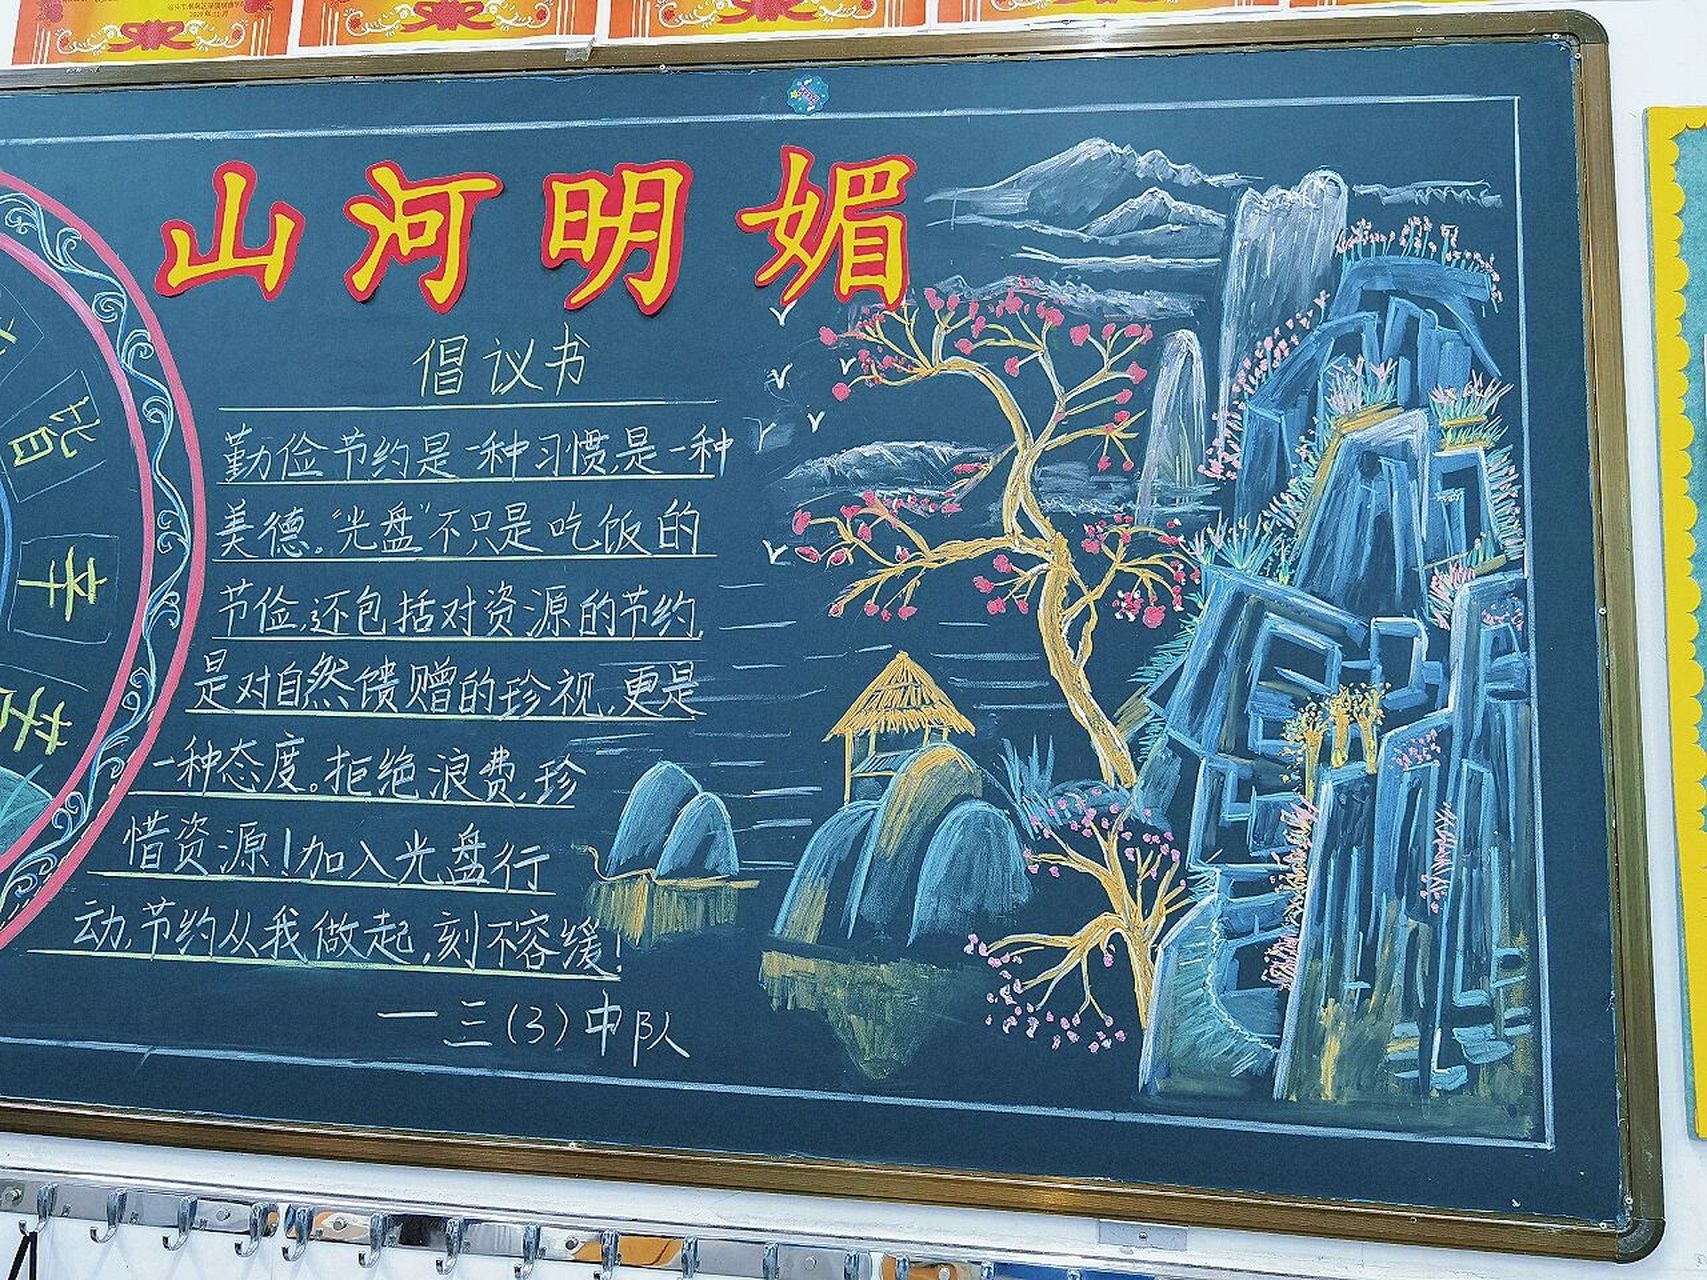 山河明媚
倡议书
勤俭节约是一种习惯,是一种
美德。“光盘”不只是吃饭的
节俭,还包括对资源的节约,
是对自然馈赠的珍视,更是
一种态度。拒绝浪费,珍
惜资源!加入光盘行
动,节约从我做起,刻不容缓!
一三(3)中队
辛